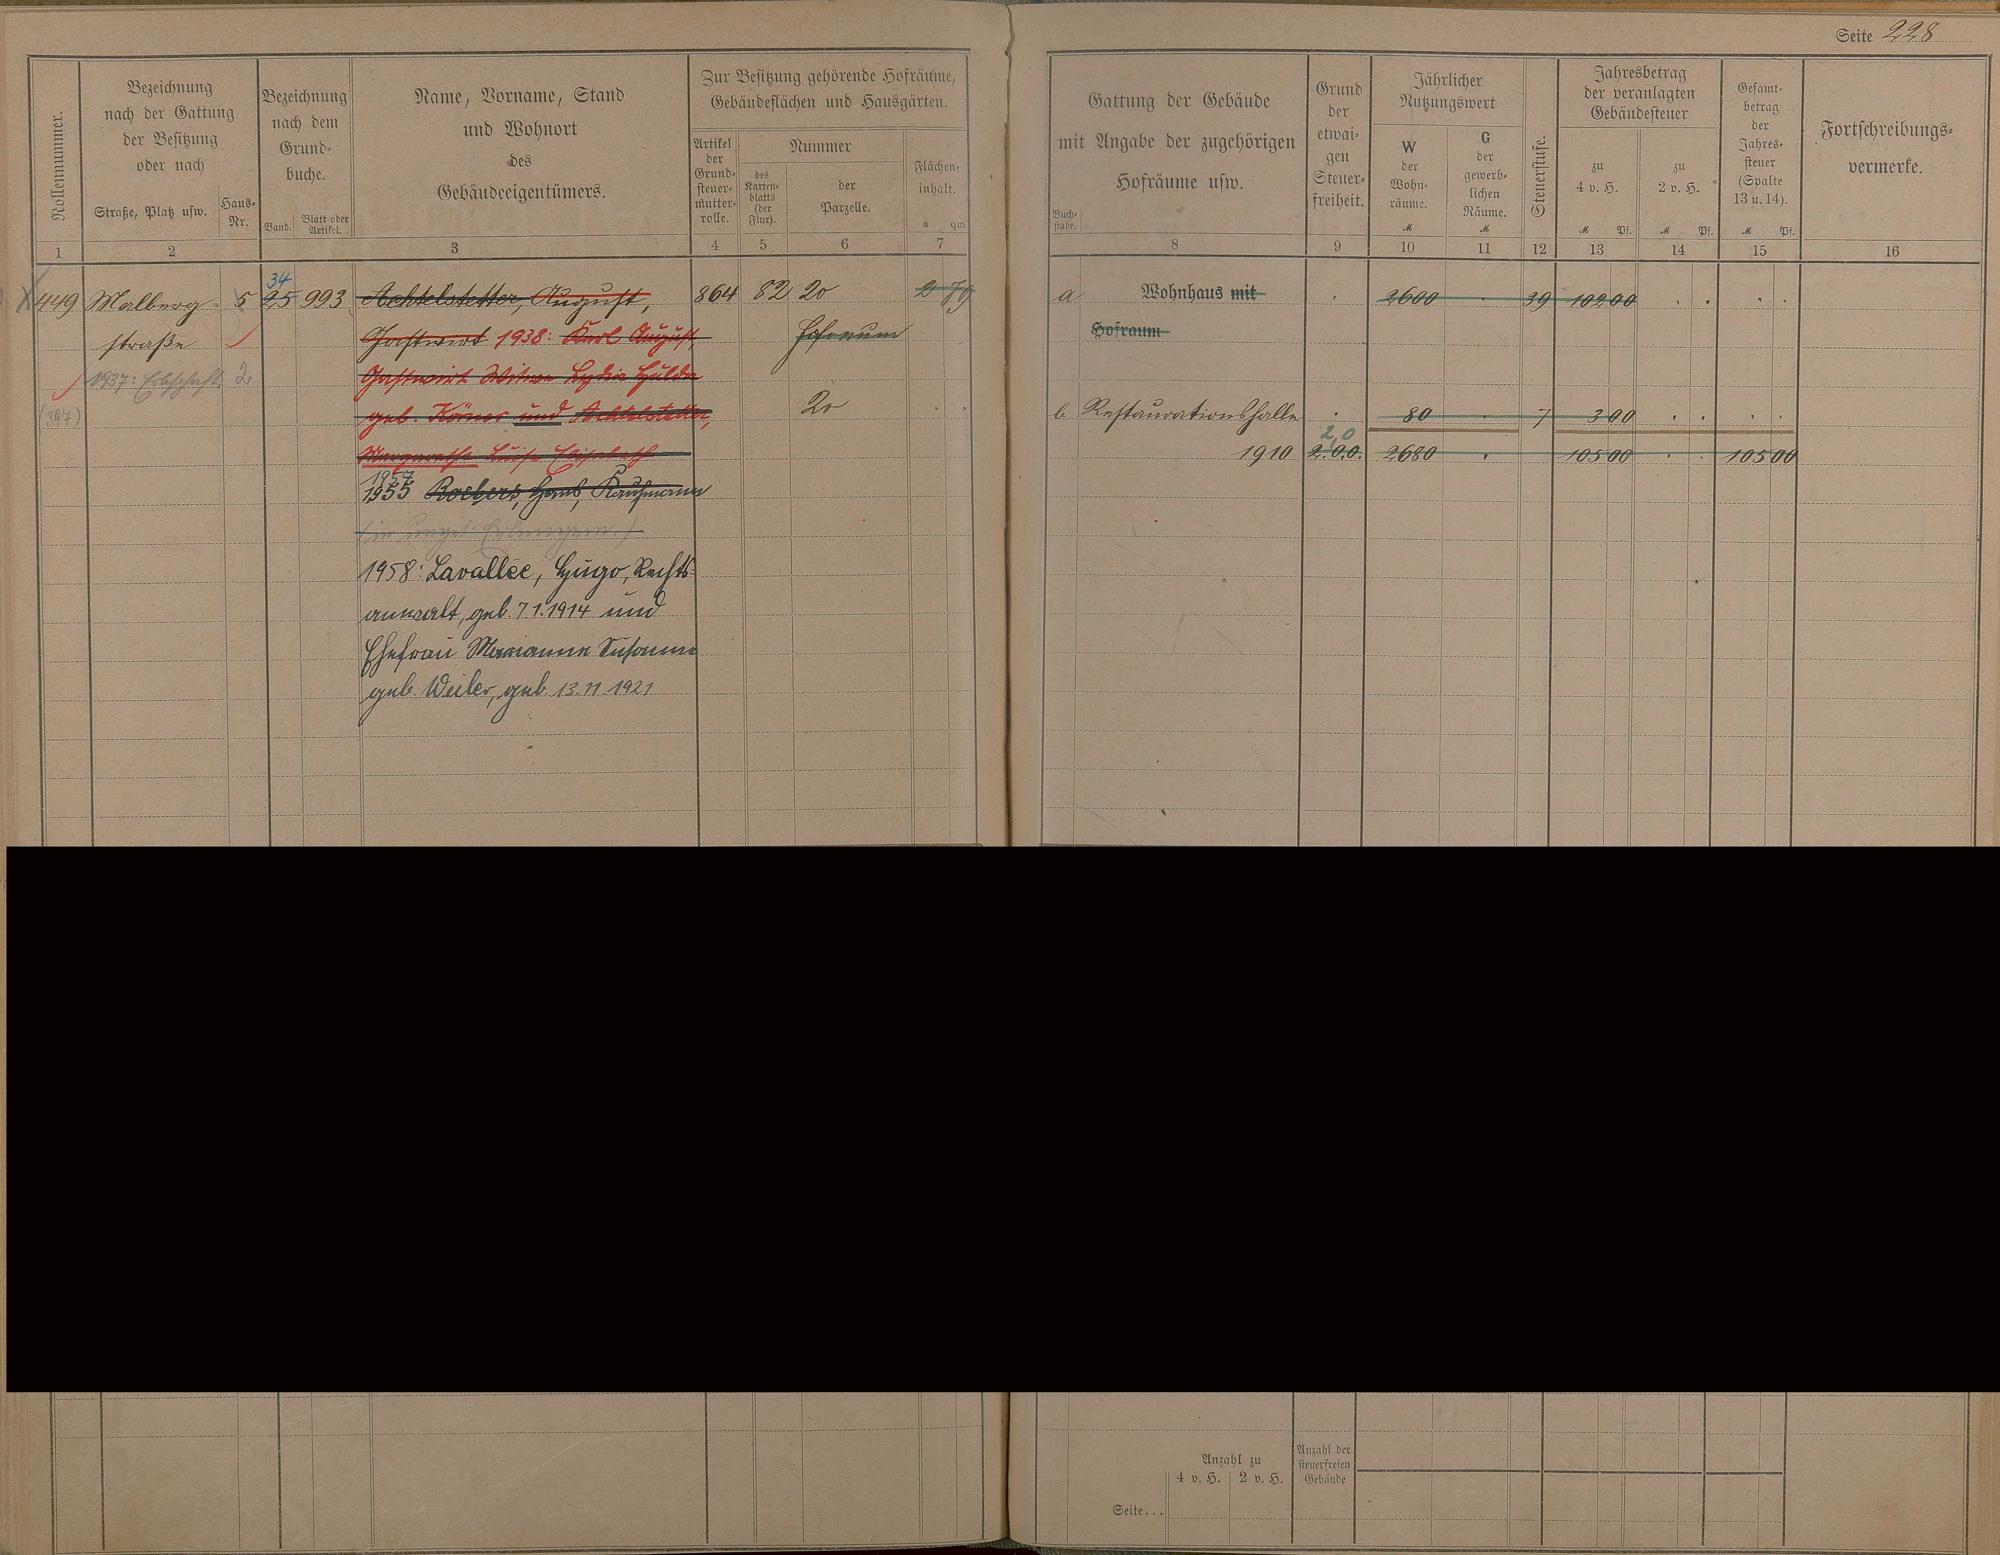 Seite 228
Rollennummer.
Bezeichnung
nach der Gattung
der Besitzung
oder nach
Straße, Platz usw.
Haus-
Nr.
Bezeichnung
nach dem
Grund-
buche.
Band.
Blatt oder
Artikel.
Name, Vorname, Stand
und Wohnort
des
Gebäudeeigentümers.
Zur Besitzung gehörende Hofräume,
Gebäudeflächen und Hausgärten.
Artikel
der
Grund-
steuer-
mutter-
rolle.
Nummer
des
Karten-
blatts
(der
Flur).
der
Parzelle.
Flächen-
inhalt.
a qm
1 2 3 4 5 6 7
Gattung der Gebäude
mit Angabe der zugehörigen
Hofräume usw.
Buch-
stabe.
Grund
der
etwai-
gen
Steuer-
freiheit.
Jährlicher
Nutzungswert
W
der
Wohn-
räume.
M
G
der
gewerb-
lichen
Räume.
M
Steuerstufe.
Jahresbetrag
der veranlagten
Gebäudesteuer
zu
4 v. H.
M Pf.
zu
2 v. H.
M Pf.
Gesamt-
betrag
der
Jahres-
steuer
(Spalte
13 u. 14).
M Pf.
Fortschreibungs-
vermerke.
8 9 10 11 12 13 14 15 16
34
449 Malberg- 5 25 993 Achtelstetter, August, 864 82 20 2 79
straße Gastwirt 1938: Karl August, Hofraum
1937: Erbschaft Gastwirt Witwe Lydia Hulda
(397) geb. Körner und Achtelstetter, 20
Margarethe Luise Elisabeth
1957
1955 Roebers, Hans, Kaufmann
1958: Lavallée, Hugo, Rechts-
anwalt, geb. 7.1.1914 und
Ehefrau Marianne Susanne
geb. Weiler, geb. 13.11.1921
a Wohnhaus mit 2600 39 102 00
Hofraum
b Restaurationshalle 80 7 3 00
2,0
1910 2.0.0. 2680 105 00 105 00
Anzahl zu
4 v. H. 2 v. H.
Anzahl der
steuerfreien
Gebäude
Seite...